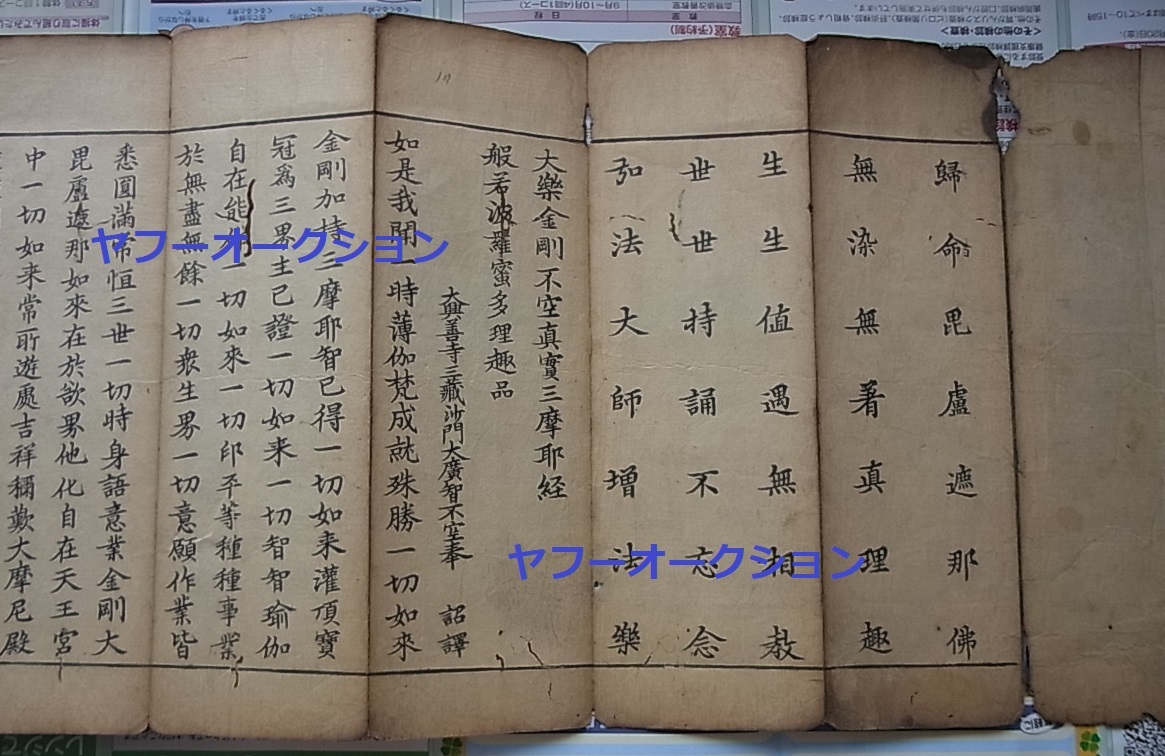 歸命毘盧遮那佛
無染無著真理趣
生生值遇無相教
世世持誦不忘念
弘法大師增法樂
大樂金剛不空真實三摩耶経
般若波羅蜜多理趣品
大興善寺三藏沙門大廣智不空奉 詔譯
如是我聞一時薄伽梵成就殊勝一切如來
金剛加持三摩耶智已得一切如来灌頂寶
冠為三界主已證一切如来一切智智瑜伽
自在能一切如来一切印平等種種事業
於無盡無餘一切衆生界一切意願作業皆
悉圓滿常恒三世一切時身語意業金剛大
毘盧遮那如來在於欲界他化自在天王宮
中一切如来常所遊處吉祥稱歎大摩尼殿
ヤフーオークション
ヤフーオークション
教室(予約制)
日程
9月~10月(4回1コース)
<その他の検診・検査>